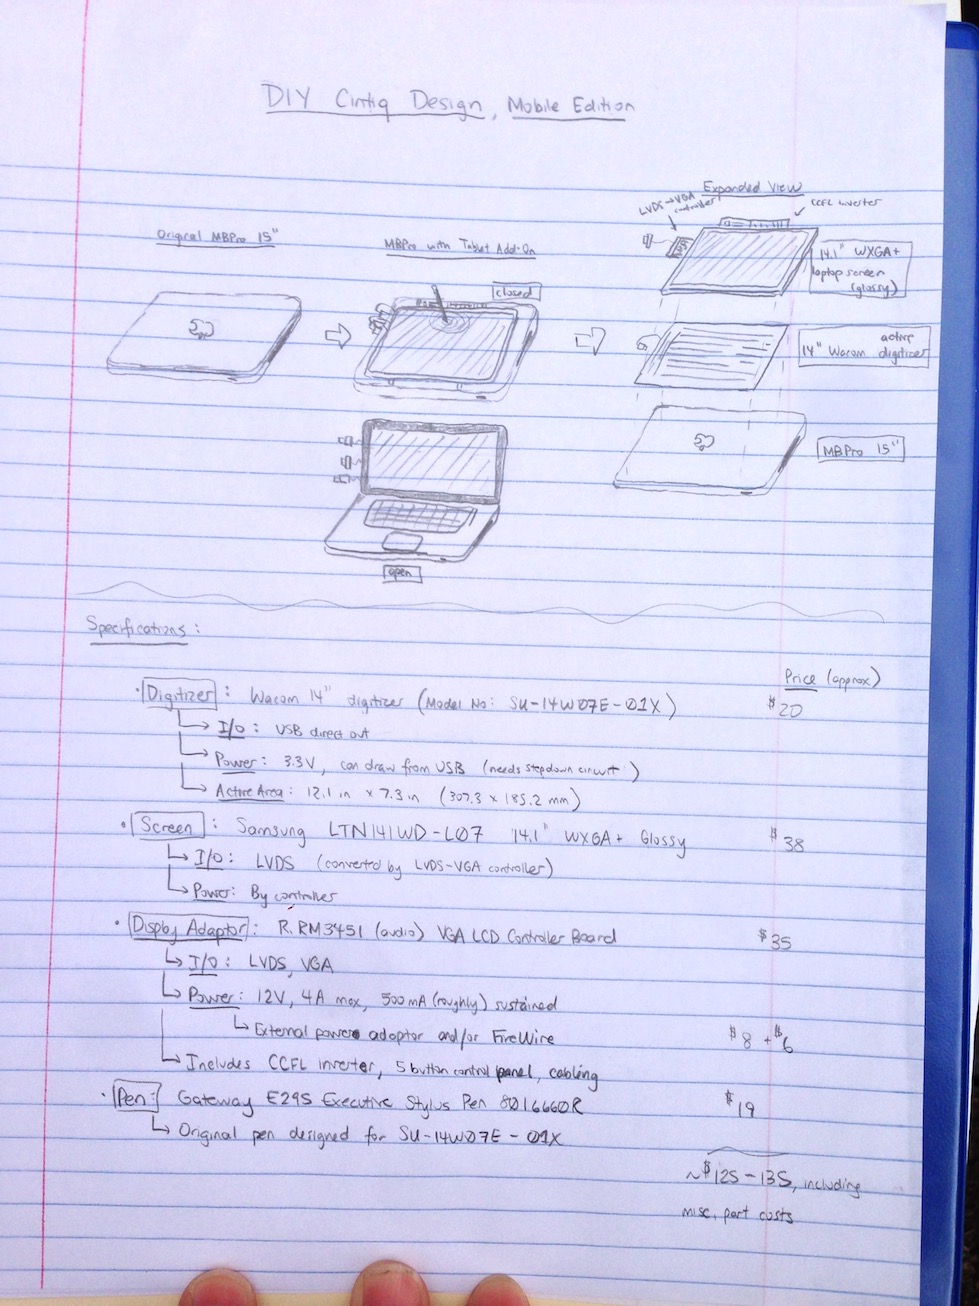 DIY Cintiq Design, Mobile Edition
Expanded View
LVDS→VGA controller
CCFL inverter
Original MBPro 15"
MBPro with Tablet Add-On
closed
14.1" WXGA+
laptop screen
(glossy)
active
14" Wacom digitizer
MBPro 15"
open
Specifications:
Price (approx)
· Digitizer: Wacom 14" digitizer (Model No: SU-14W07E-01X) $20
↳ I/O: USB direct out
↳ Power: 3.3V, can draw from USB (needs stepdown circuit)
↳ Active Area: 12.1 in x 7.3 in (307.3 x 185.2 mm)
· Screen: Samsung LTN141WD-L07 14.1" WXGA+ Glossy $38
↳ I/O: LVDS (converted by LVDS-VGA controller)
↳ Power: By controller
· Display Adaptor: R.RM3451 (audio) VGA LCD Controller Board $35
↳ I/O: LVDS, VGA
↳ Power: 12V, 4A max, 500mA (roughly) sustained
↳ External power adaptor and/or FireWire $8 + $6
↳ Includes CCFL inverter, 5 button control panel, cabling
· Pen: Gateway E295 Executive Stylus Pen 8016660R $19
↳ Original pen designed for SU-14W07E-01X
~$125-135, including
misc. part costs